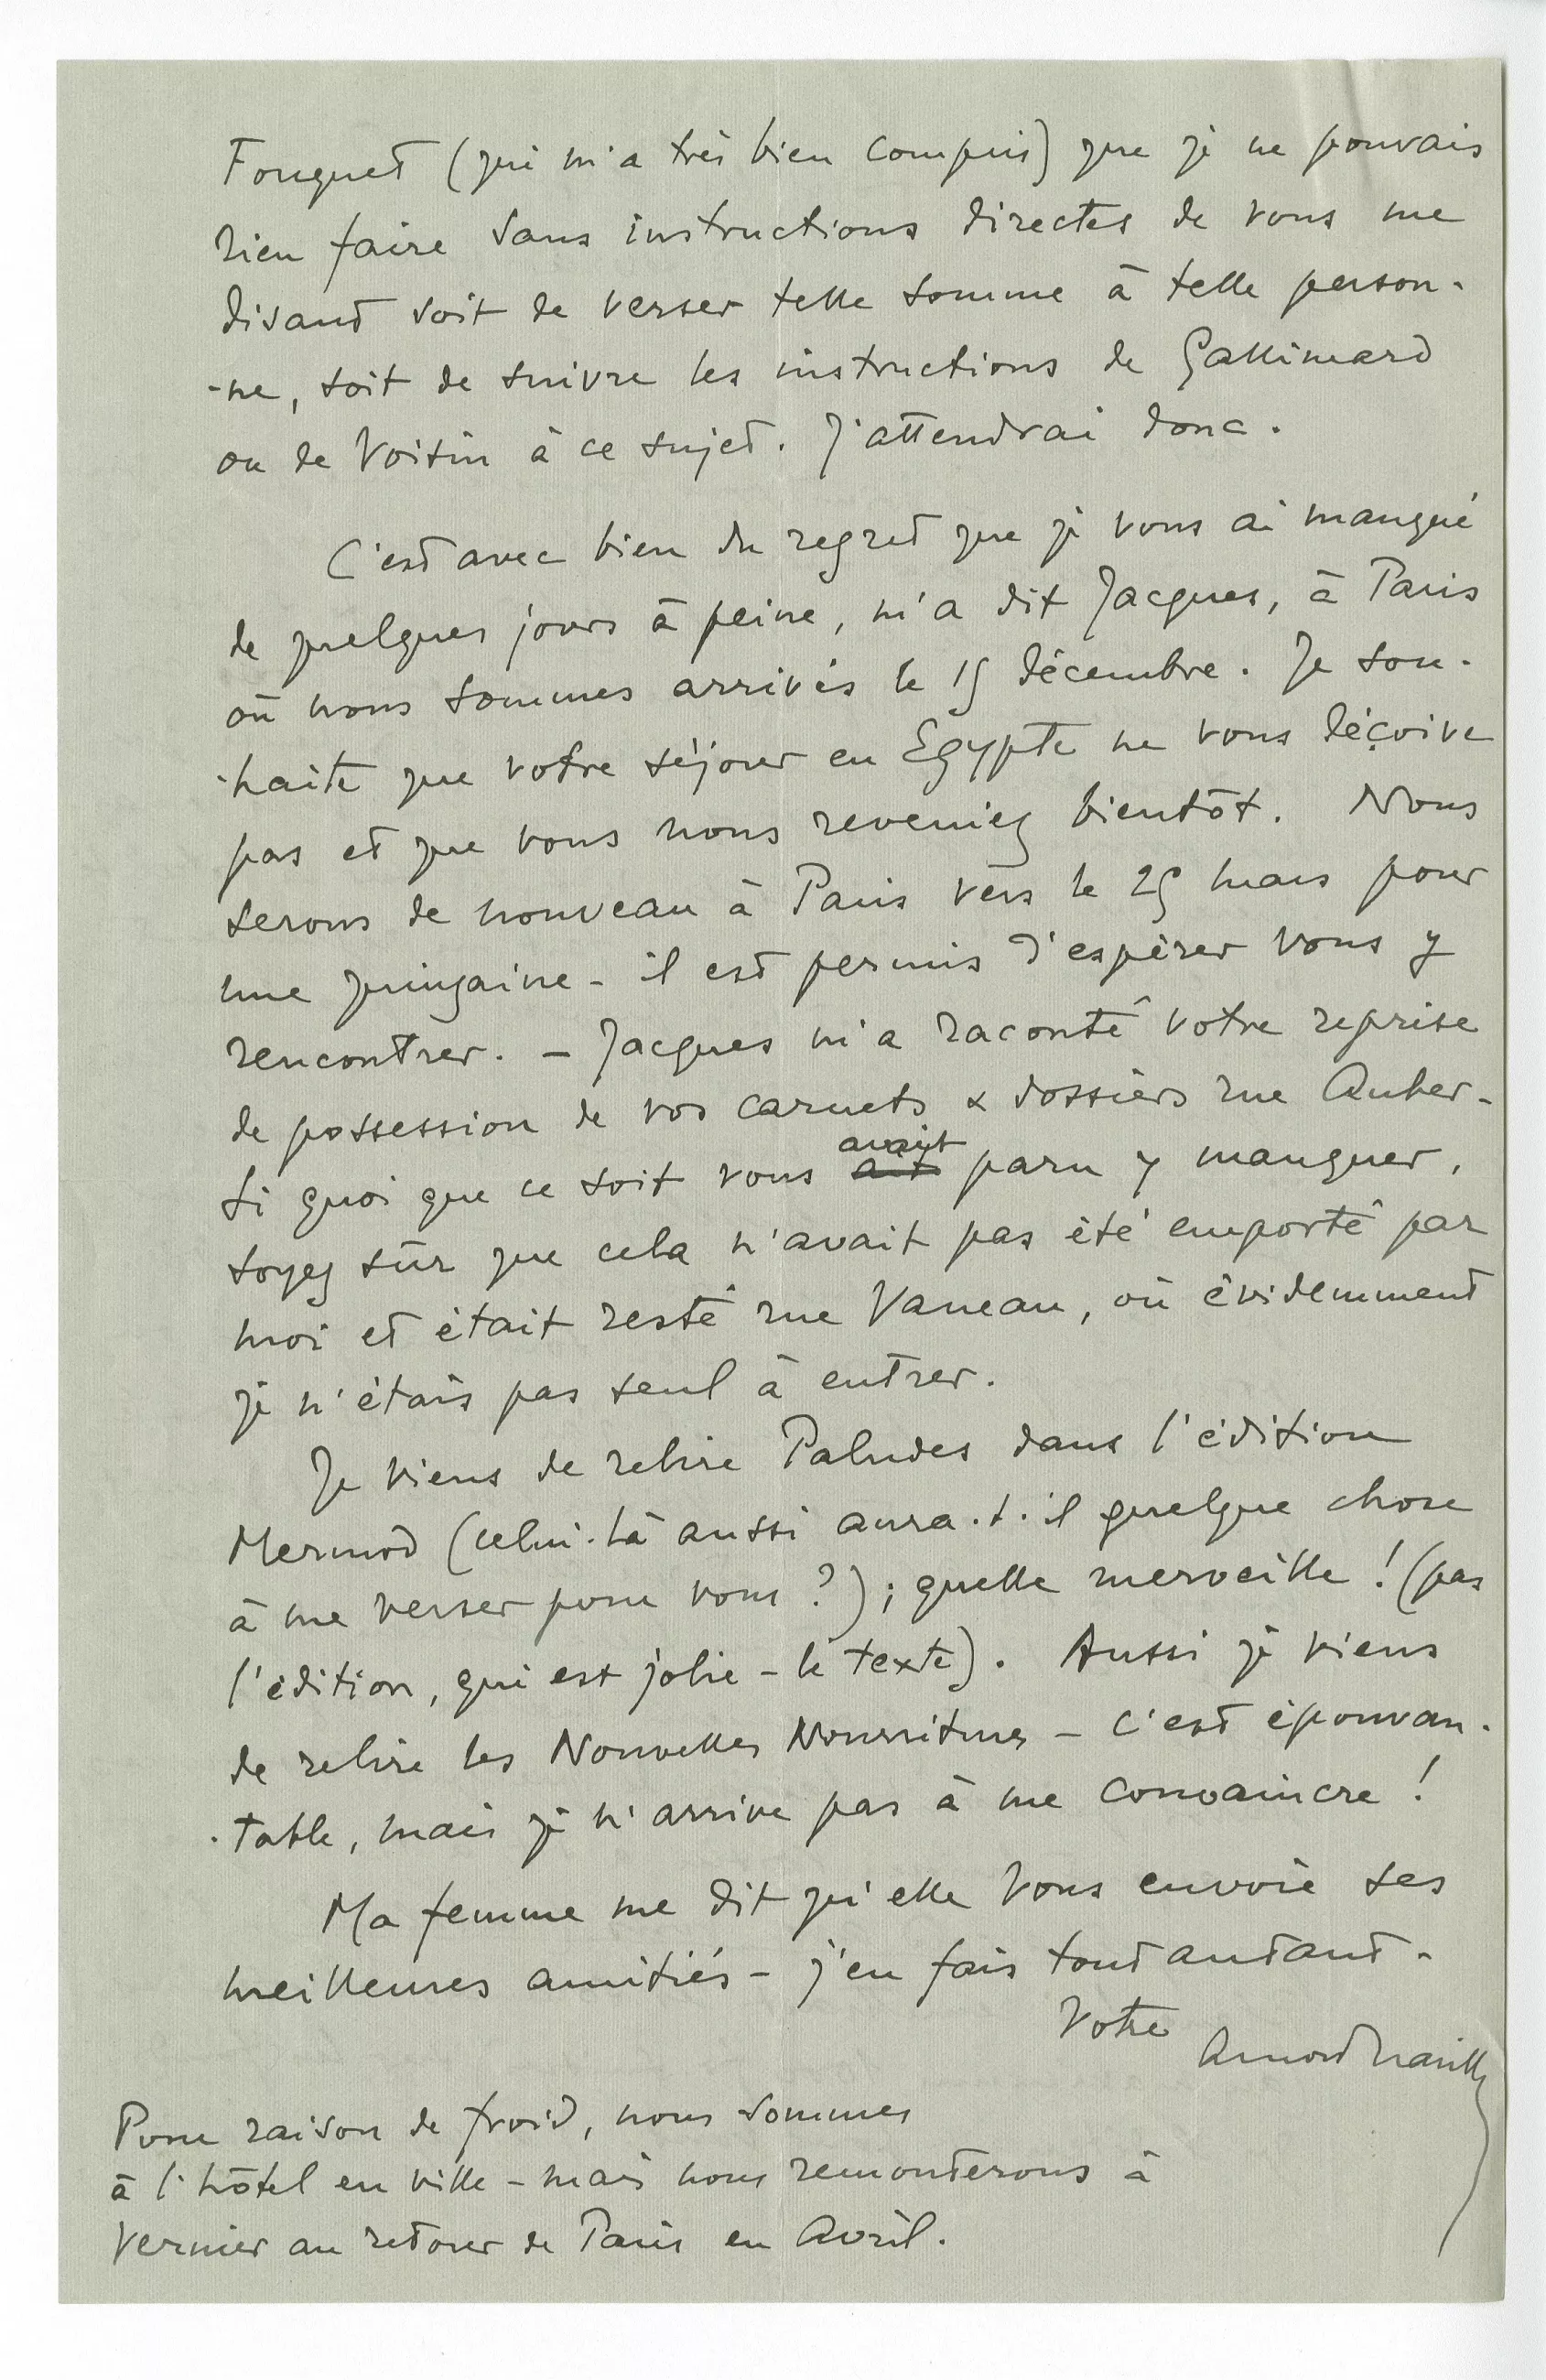 Fouquet (qui m'a très bien compris) que je ne pouvais
rien faire sans instructions directes de vous me
disant soit de verser telle somme à telle person-
-ne, soit de suivre les instructions de Gallimard
ou de Voisin à ce sujet. J'attendrai donc.
C'est avec bien du regret que je vous ai manqué
de quelques jours à peine, m'a dit Jacques, à Paris
où nous sommes arrivés le 15 décembre. Je sou-
-haite que votre séjour en Egypte ne vous déçoive
pas et que vous nous reveniez bientôt. Nous
serons de nouveau à Paris vers le 25 mars pour
une quinzaine - il est permis d'espérer vous y
rencontrer. - Jacques m'a raconté votre reprise
de possession de vos carnets & dossiers rue Auber -
avait
Si quoi que ce soit vous ait paru y manquer,
soyez sûr que cela n'avait pas été emporté par
moi et était resté rue Vaneau, où évidemment
je n'étais pas seul à entrer.
Je viens de relire Paludes dans l'édition
Mermod (celui-là aussi aura-t-il quelque chose
à me verser pour vous ?) ; quelle merveille ! (pas
l'édition, qui est jolie - le texte). Aussi je viens
de relire les Nouvelles Nourritures - c'est épouvan-
-table, mais je n'arrive pas à me convaincre !
Ma femme me dit qu'elle vous envoie ses
meilleures amitiés - j'en fais tout autant -
Votre
Arnold Naville
Pour raison de froid, nous sommes
à l'hôtel en ville - mais nous remonterons à
Vernier au retour de Paris en Avril.